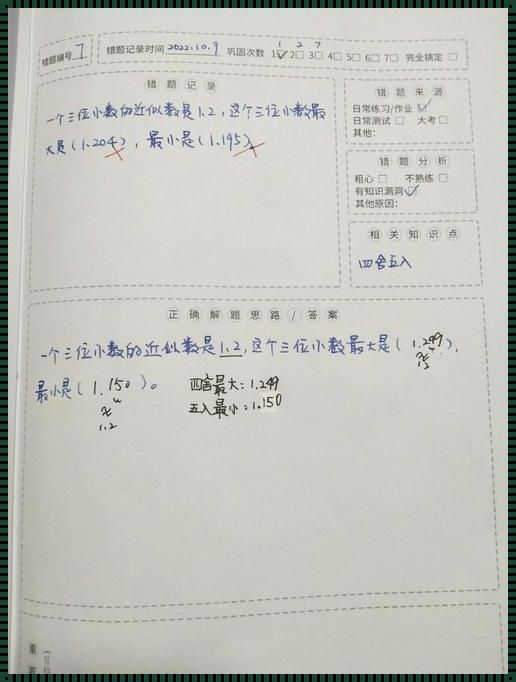 错题编号 7
错题记录时间 2022.10.9 巩固次数 1 2 3 4 5 6 7 完全搞定
1 2 7
错题记录
一个三位小数的近似数是1.2,这个三位小数最
大是(1.204),最小是(1.195)。
错题来源
日常练习/作业
日常测试 大考
其他:
错题分析
粗心 不熟练
有知识漏洞
其他原因:
相关知识点
四舍五入
正确解题思路/答案
一个三位小数的近似数是1.2,这个三位小数最大是(1.249),
≈
1.2
最小是(1.150)。 四舍最大:1.249
≈ 五入最小:1.150
1.2